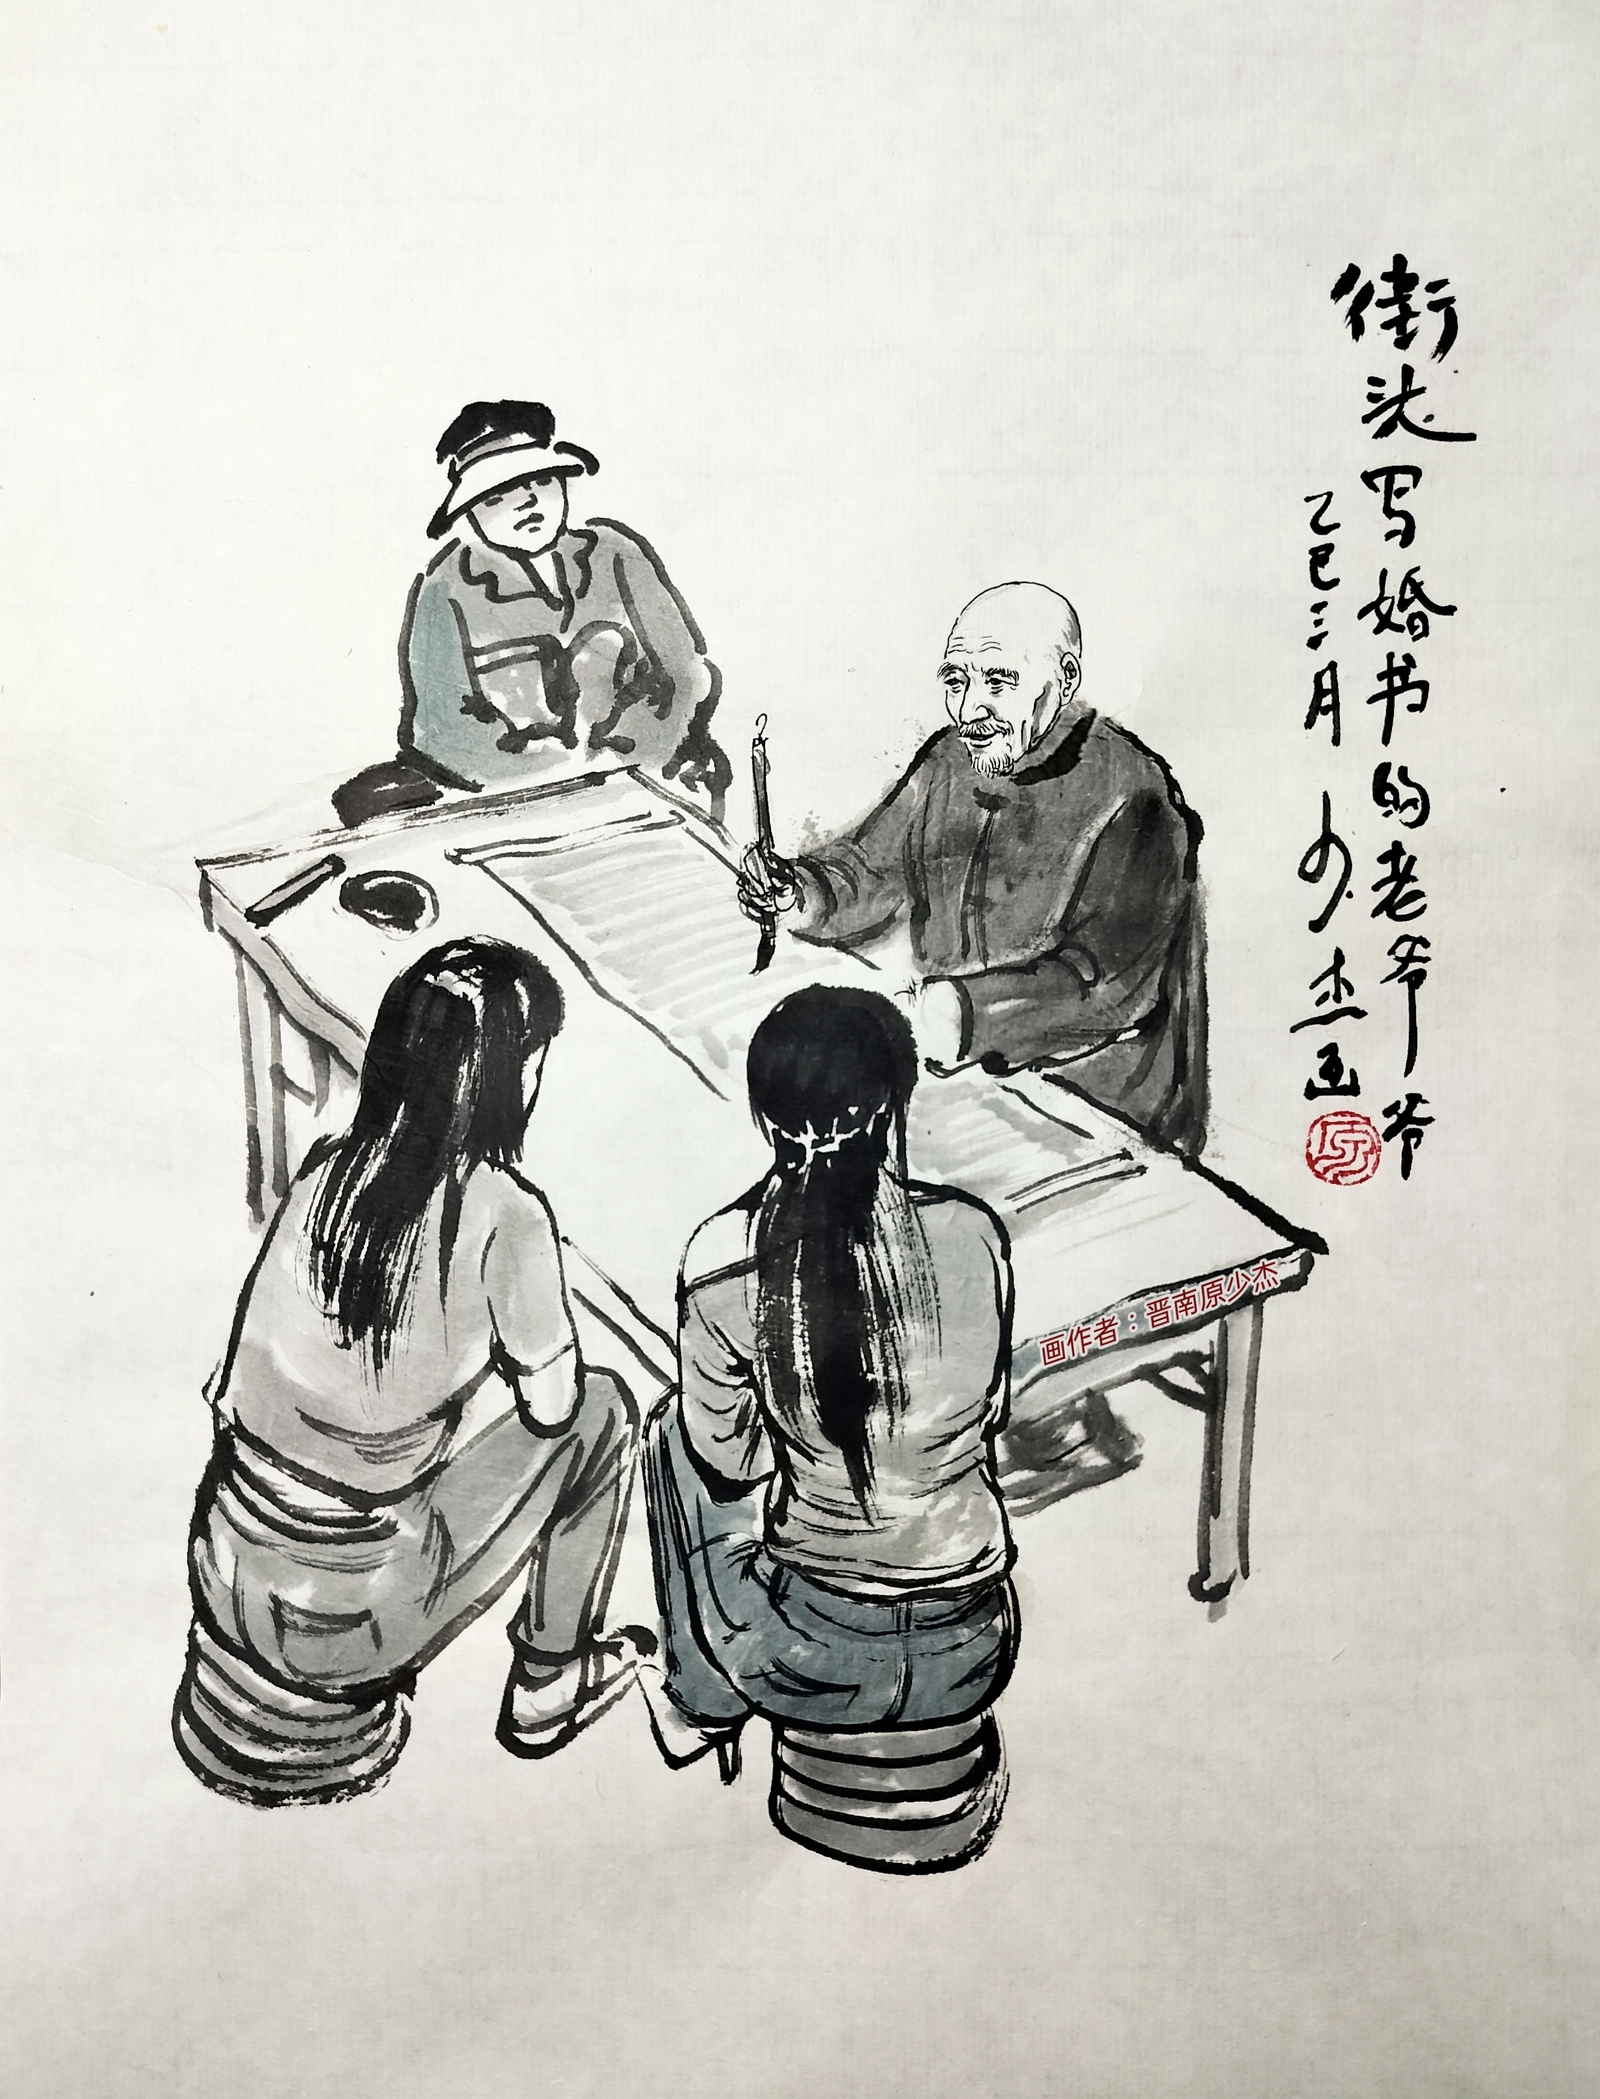 街头写婚书的老爷爷
乙巳三月 少杰画
画作者：晋南原少杰